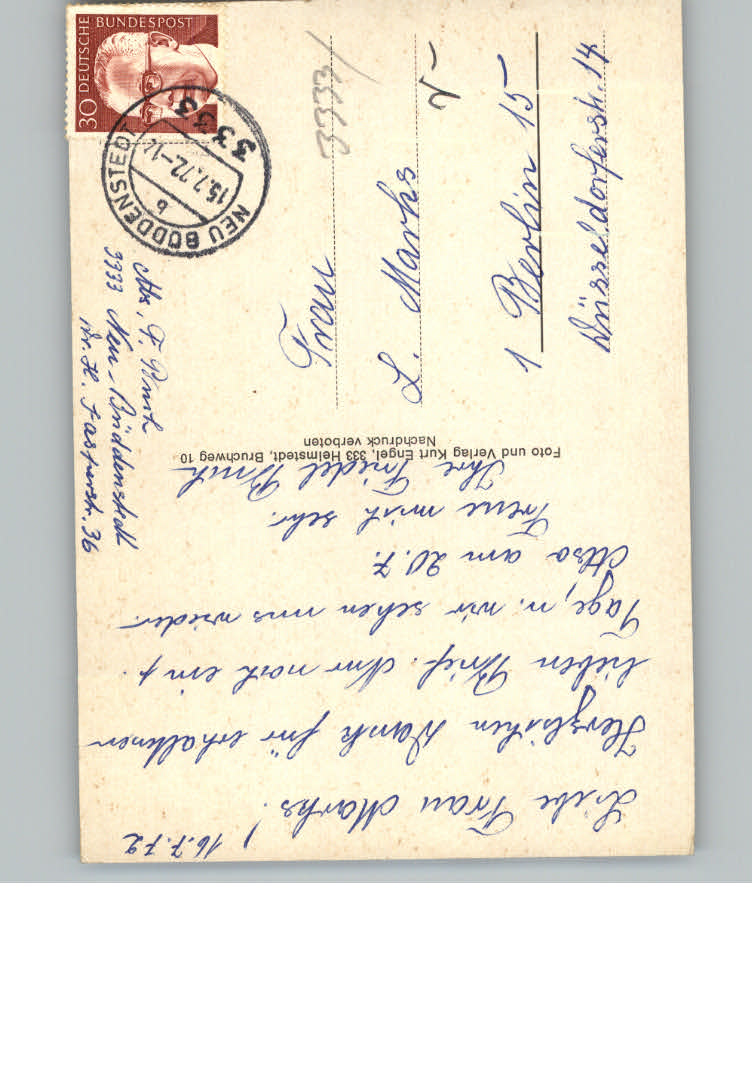 16.7.72
Liebe Frau Marks!
Herzlichen Dank für erhaltenen
lieben Brief. Nur noch ein p.
Tage, u. wir sehen uns wieder.
Also am 20.7.
Freue mich sehr.
Ihre Friedel
Foto und Verlag Kurt Engel, 333 Helmstedt, Bruchweg 10
Nachdruck verboten
Abs. F.
3333 Neu-Büddenstedt
Dr. H. Jasperstr. 36
30 DEUTSCHE BUNDESPOST
3333
NEU BÜDDENSTEDT
15.7.72
b
3333/
Frau
L. Marks
1 Berlin 15
Düsseldorferstr. 14